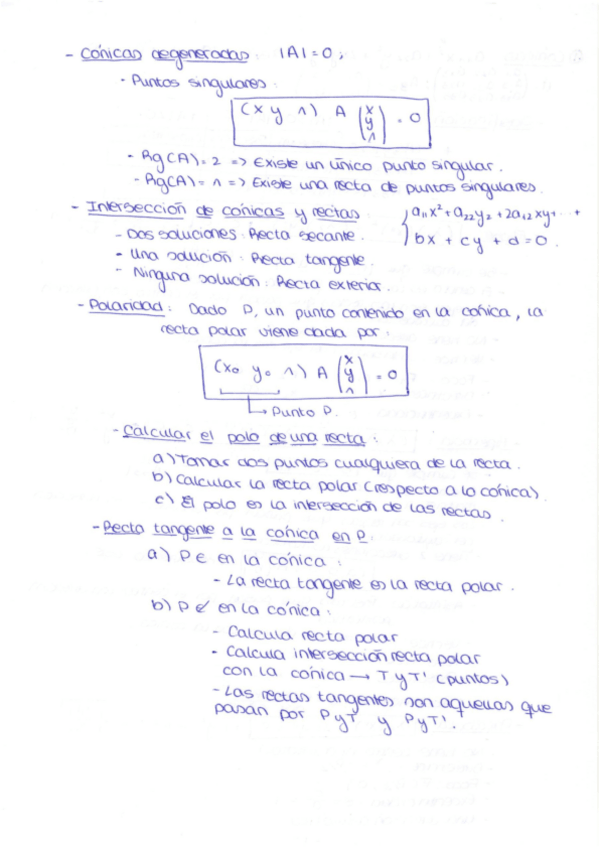 - Cónicas degeneradas: |A| = 0;
- Puntos singulares:
(x y 1) A (x y 1) = 0
- Rg(A) = 2 => Existe un único punto singular.
- Rg(A) = 1 => Existe una recta de puntos singulares.
- Intersección de cónicas y rectas: { a₁₁x² + a₂₂y₂ + 2a₁₂xy + ...+
- Dos soluciones: Recta secante. bx + cy + d = 0.
- Una solución: Recta tangente.
- Ninguna solución: Recta exterior.
- Polaridad: Dado P, un punto contenido en la cónica, la
recta polar viene dada por:
(x₀ y₀ 1) A (x y 1) = 0
↳ Punto P.
- Calcular el polo de una recta:
a) Tomar dos puntos cualquiera de la recta.
b) Calcular la recta polar (respecto a la cónica)
c) El polo es la intersección de las rectas.
- Recta tangente a la cónica en P:
a) P ∈ en la cónica:
- La recta tangente es la recta polar.
b) P ∉ en la cónica:
- Calcula recta polar
- Calcula intersección recta polar
con la cónica → T y T' (puntos)
- Las rectas tangentes son aquellas que
pasan por P y T y P y T'.